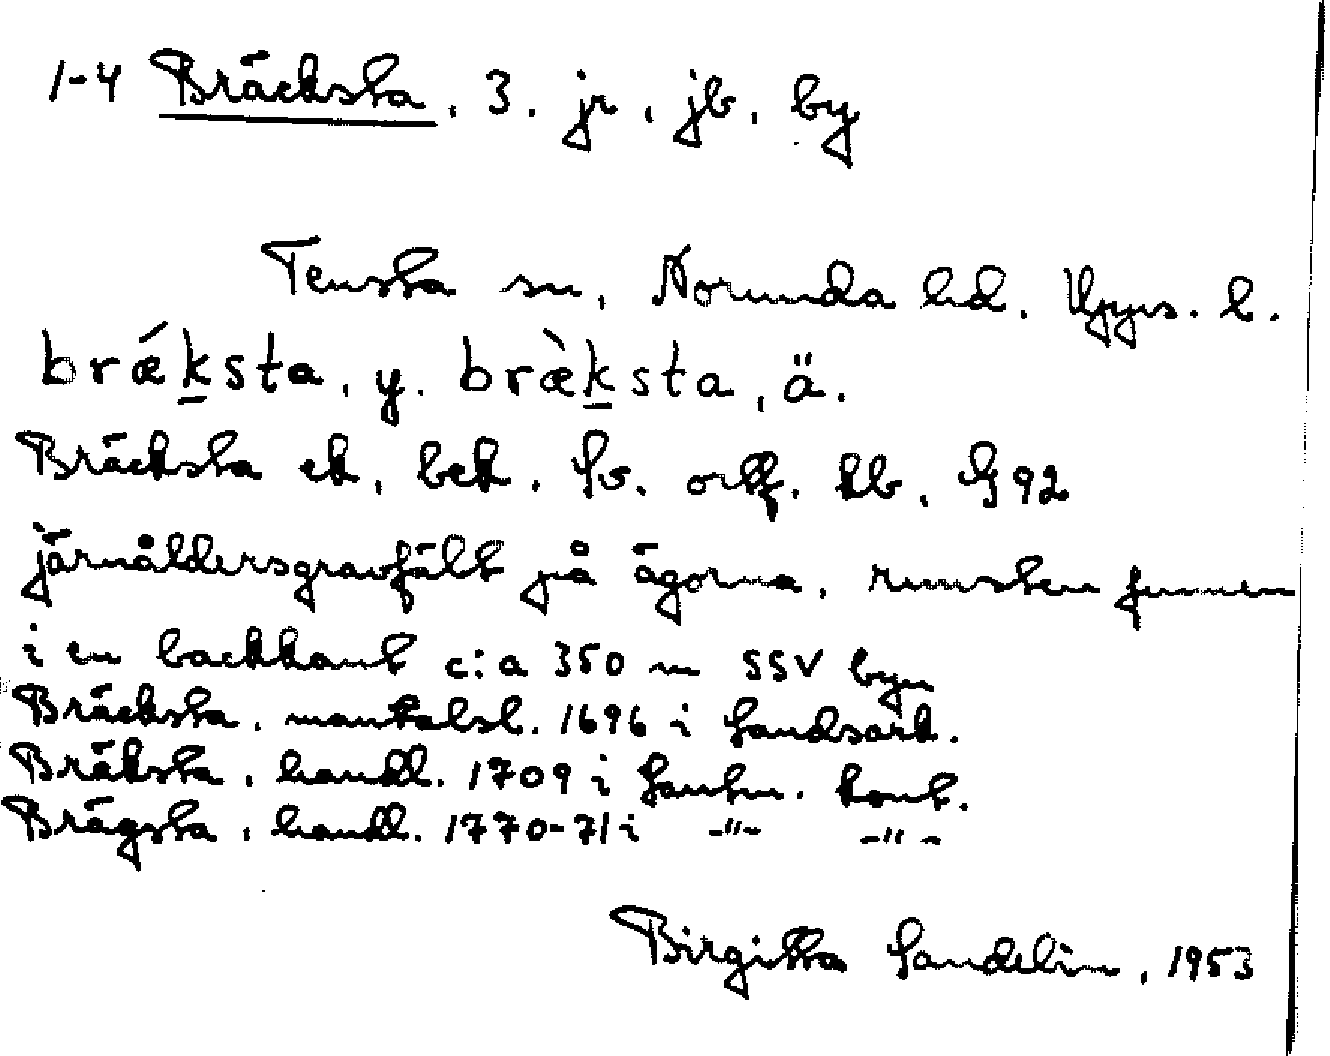 1-4 Bräcksta, 3. jr, jb, by
Tensta sn, Norunda hd. Upps. l.
brǽksta, y. bræ̀ksta, ä.
Bräcksta ek, bek. Sv. ortf. kb, G 92
järnåldersgravfält på ägorna, runsten funnen
i en backkant c:a 350 m SSV byn
Bräcksta, mantalsl. 1696 i Landsark.
Bräksta, handl. 1709 i Lantm. kont.
Brägsta, handl. 1770-71 i -"- -"-
Birgitta Sandelin, 1953